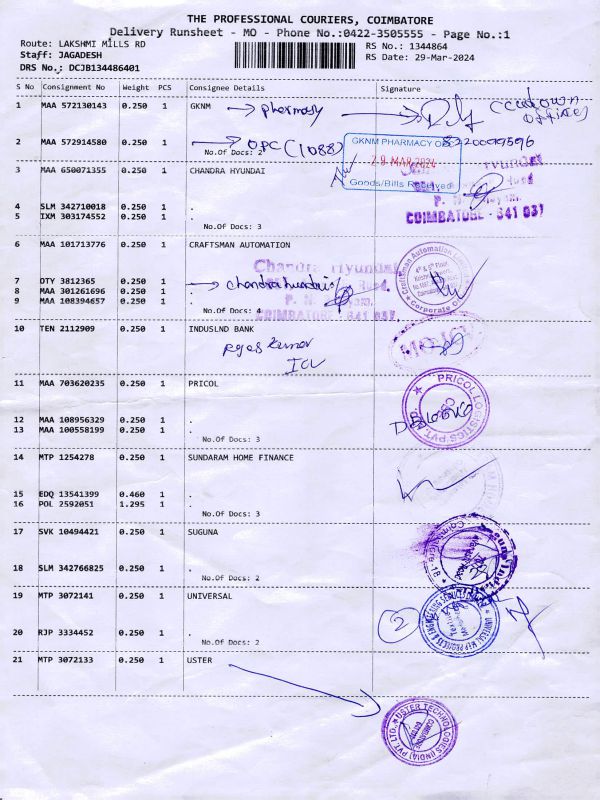 THE PROFESSIONAL COURIERS, COIMBATORE
Delivery Runsheet - MO - Phone No.:0422-3505555 - Page No.:1
Route: LAKSHMI MILLS RD
Staff: JAGADESH
DRS No.: DCJB134486401
RS No.: 1344864
RS Date: 29-Mar-2024
S No Consignment No Weight PCS Consignee Details Signature
1 MAA 572130143 0.250 1 GKNM pharmacy
2 MAA 572914580 0.250 1 . OPC (1088)
No.Of Docs: 2
GKNM PHARMACY
29 MAR 2024
Goods/Bills Received
3 MAA 650071355 0.250 1 CHANDRA HYUNDAI
4 SLM 342710018 0.250 1 .
5 IXM 303174552 0.250 1 .
No.Of Docs: 3
COIMBATORE - 641 037
6 MAA 101713776 0.250 1 CRAFTSMAN AUTOMATION
Chandra Hyundai
7 DTY 3812365 0.250 1 . chandra hundai
8 MAA 301261696 0.250 1 .
9 MAA 108394657 0.250 1 .
No.Of Docs: 4
COIMBATORE - 641 037
Craftsman Automation
Corporate
10 TEN 2112909 0.250 1 INDUSLND BANK
11 MAA 703620235 0.250 1 PRICOL
12 MAA 108956329 0.250 1 .
13 MAA 100558199 0.250 1 .
No.Of Docs: 3
PRICOL LOGISTICS PVT. LTD.
14 MTP 1254278 0.250 1 SUNDARAM HOME FINANCE
15 EDQ 13541399 0.460 1 .
16 POL 2592051 1.295 1 .
No.Of Docs: 3
17 SVK 10494421 0.250 1 SUGUNA
18 SLM 342766825 0.250 1 .
No.Of Docs: 2
19 MTP 3072141 0.250 1 UNIVERSAL
20 RJP 3334452 0.250 1 .
No.Of Docs: 2
2
21 MTP 3072133 0.250 1 USTER
USTER TECHNOLOGIES (INDIA) PVT. LTD.
COIMBATORE